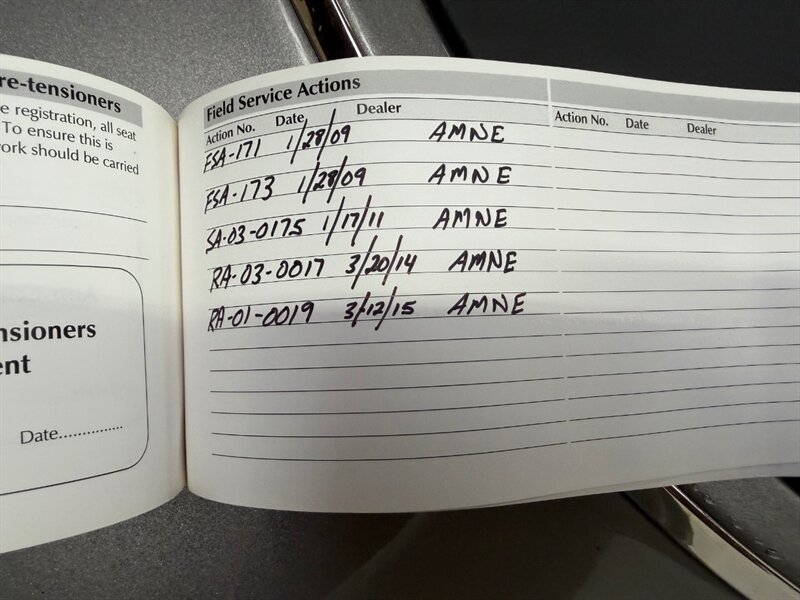 re-tensioners
e registration, all seat
To ensure this is
ork should be carried
nsioners
ent
Date...............
Field Service Actions
Action No. Date Dealer
FSA-171 1/28/09 AMNE
FSA-173 1/28/09 AMNE
SA-03-0175 1/17/11 AMNE
RA-03-0017 3/20/14 AMNE
RA-01-0019 3/12/15 AMNE
Action No. Date Dealer